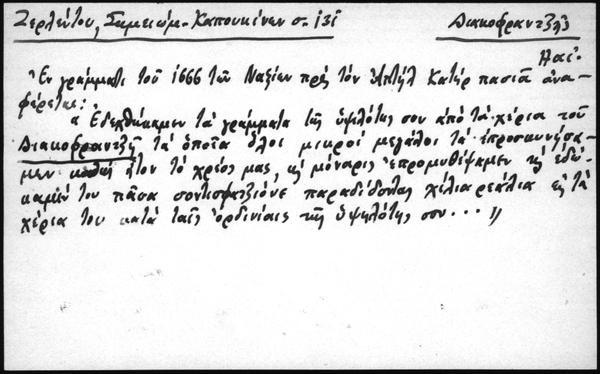 Ζερλέντου, Σημειώμ. Καπουκίνων σ. 131 Διακοφραντζῆς
Ἐν γράμματι τοῦ 1666 τῶν Ναξίων πρός τόν Ἀπτήλ Κατήρ πασιᾶ ἀνα-
φέρεται:
« Ἐδεχθήκαμεν τά γράμματα τῆς ὑψηλότης σου ἀπό τά χέρια τοῦ
Διακοφραντζῆ τά ὁποῖα ὅλοι μικροί μεγάλοι τά ἐπροσκυνήσα-
μεν καθώς ἦτον τό χρέος μας, κ μόναρις ἐπρομυθίψαμεν κ ἐδώ-
καμέν του πᾶσα σοντισφατζιόνε παραδίδοντας χίλια ρεάλια εἰς τά
χέρια του κατά ταῖς ὀρδινίαις τῆς ὑψηλότης σου... »